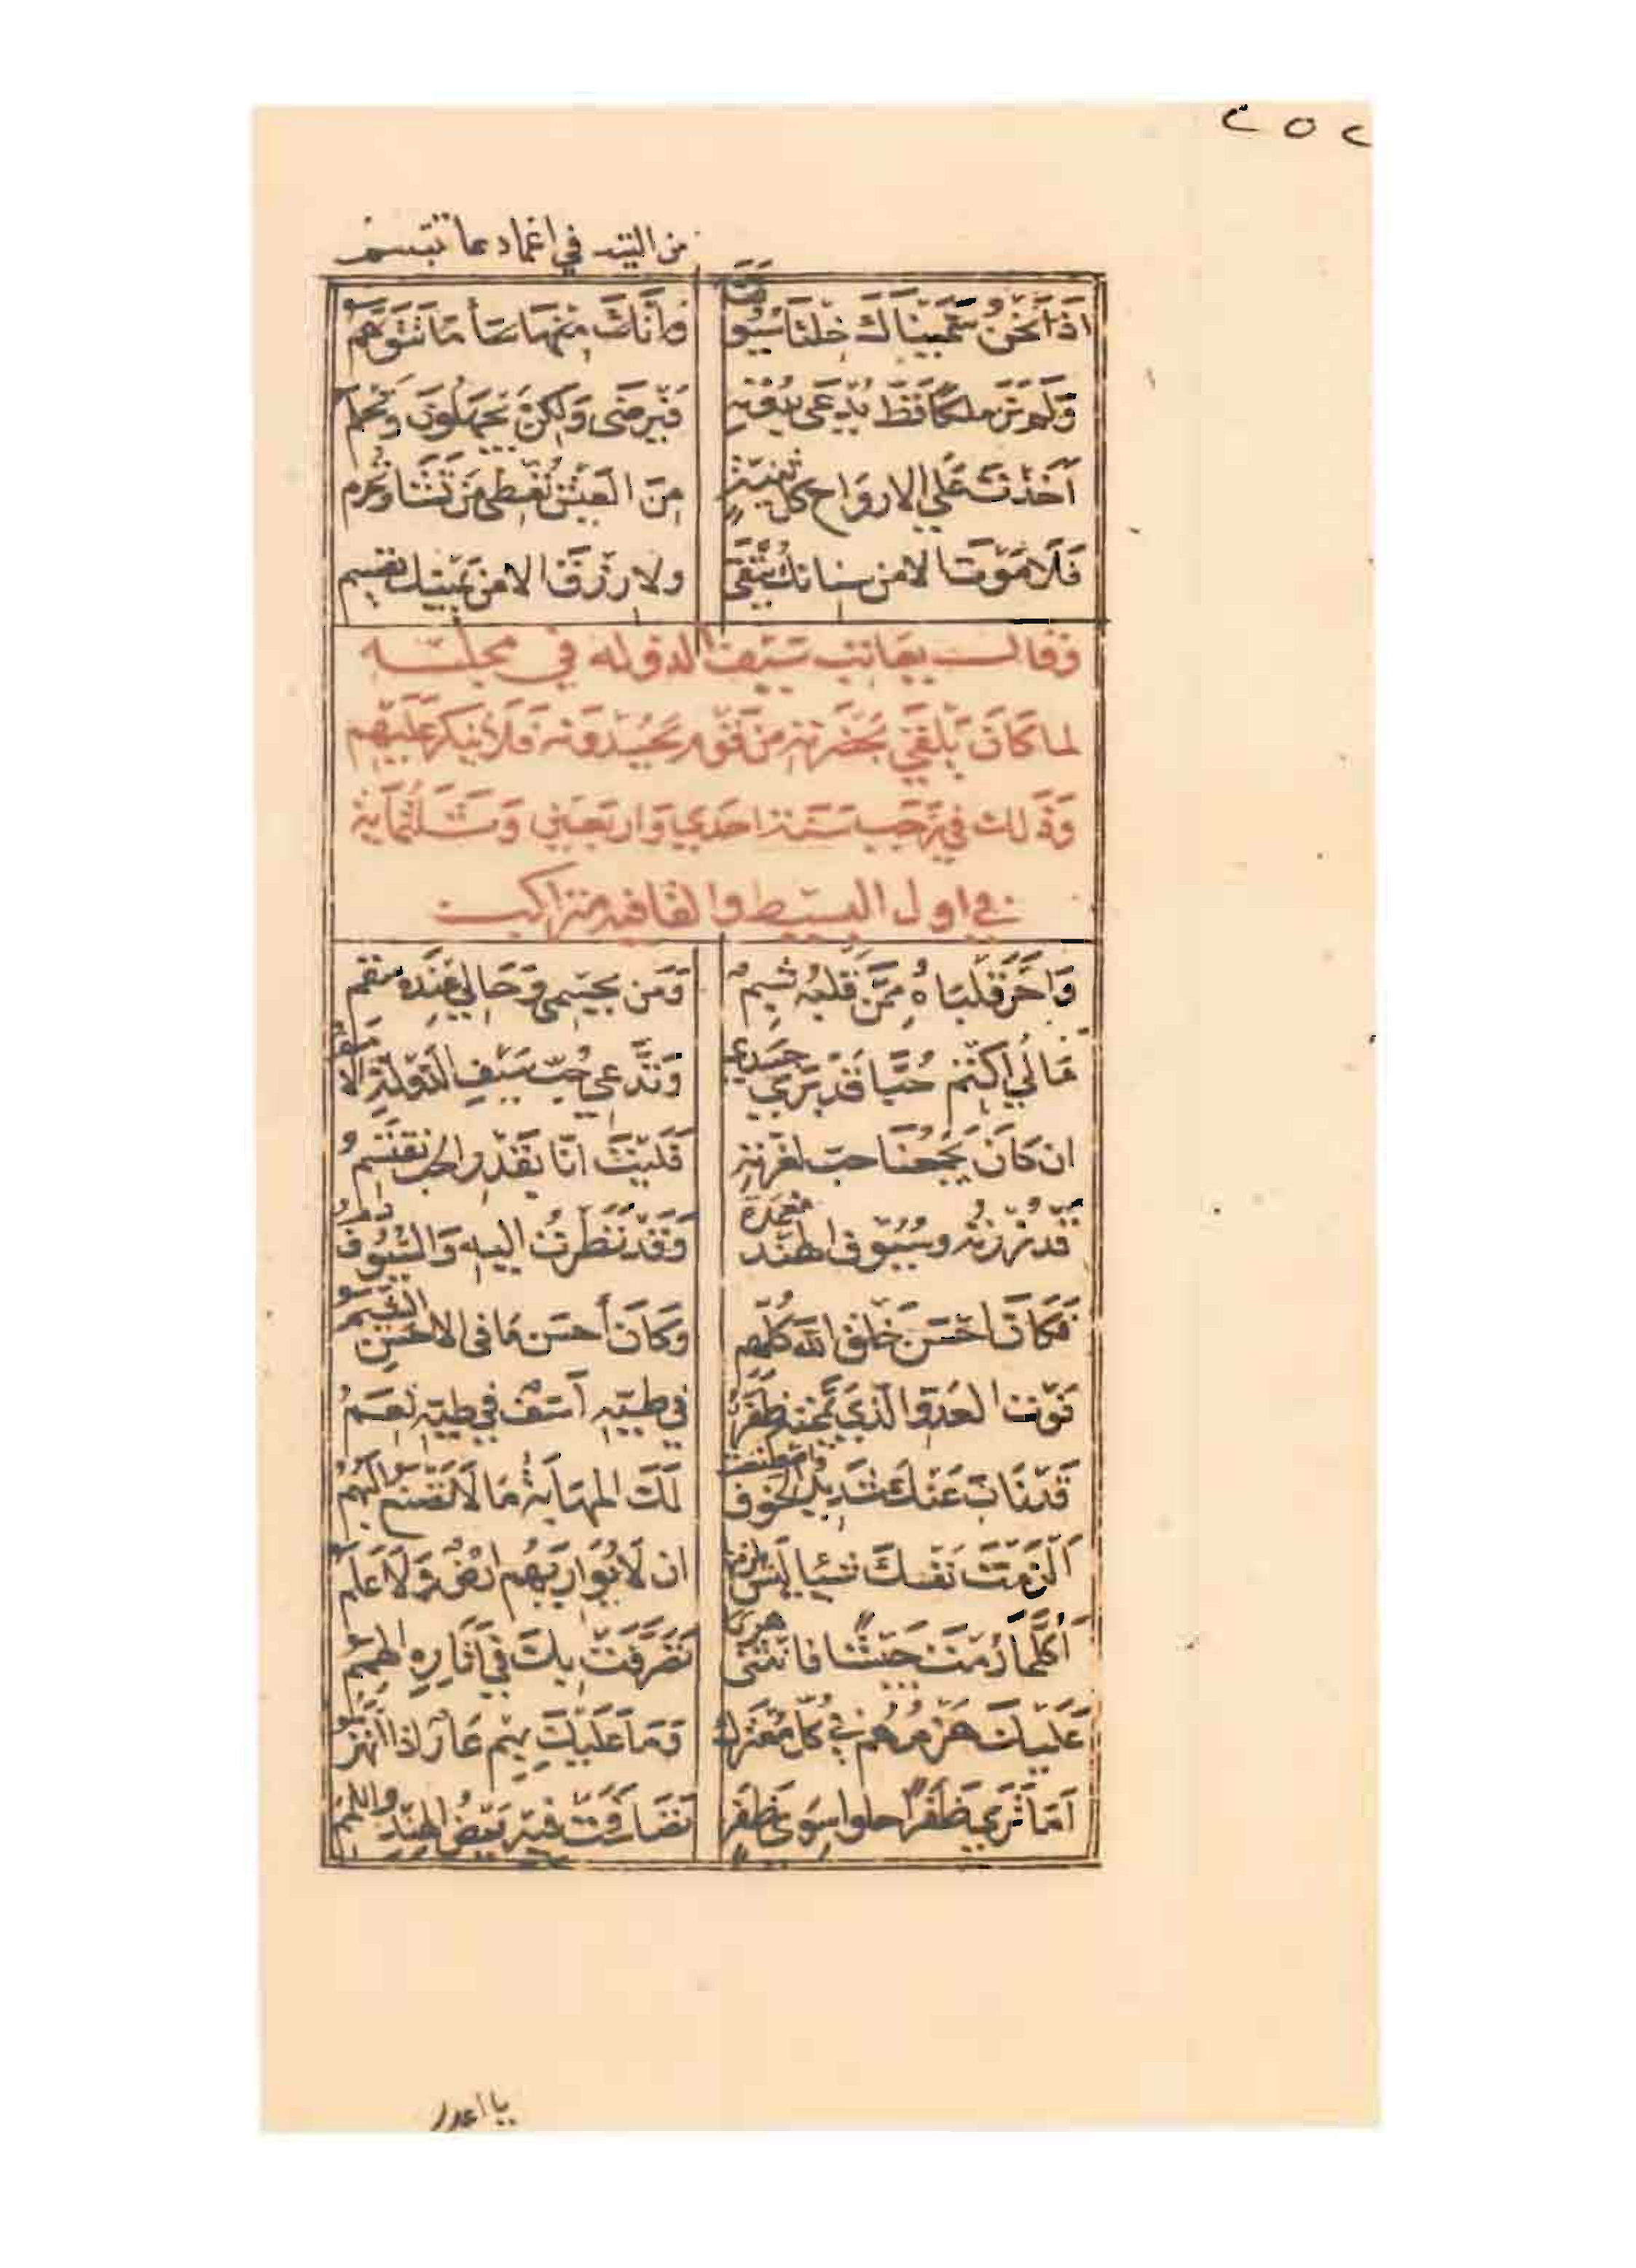 ٢٥٢
من التيه في اغمادها تتبسم
اذا نحن سميناك خلنا سيوفنا وانك منها ساء ما نتوهم
ولم نر ملكا قط يدعى بدونه فيرضى ولكن يجهلون وتحلم
اخذت على الارواح كل ثنية من العيش تعطي من تشا وتحرم
فلا موت الا من سنانك يتقى ولا رزق الا من يمينك يقسم
وقال يعاتب سيف الدوله في مجلسه
لما كان يلقى بحضرته من قوم يحسدونه فلا ينكر عليهم
وذلك في رجب سنة احدي واربعين وثلثماية
في اول البسيط والقافيه متراكب
وَاحَرَّ قلباهُ ممّن قلبهُ شبمُ ومن بجسمي وحالي عنده سقم
مالي اكتّم حُبّا قد بري جسدي وتدّعي حُبّ سيفِ الدّولةِ الامم
ان كان يجمعنا حبّ لغرّته فليت انّا بقدر الحب نقتسمُ
قد زرته وسيوف الهند مغمدة وقد نظرت اليه والسّيوف دم
فكان احسن خلق الله كلّهم وكان أحسن ما في الاحسن الشيم
فوت العدو الّذي يممته ظفر في طيّه اسف في طيّه نعمُ
قد ناب عنك شديد الخوف واصطنعت لك المهابة ما لا تصنع البهمُ
الزمت نفسك شيئا ليس يلزمها ان لا يواريهم ارضٌ ولا علم
أكلّما رمت جيشًا فانثنى هربا تصرّفت بك في آثاره الهمم
عليك هزمهم في كلّ معترك وما عليك بهم عار اذا انهزموا
اما تري ظفرًا حلوا سوى ظفرٍ تصافحت فيه بيض الهند واللمم
يا اعدل